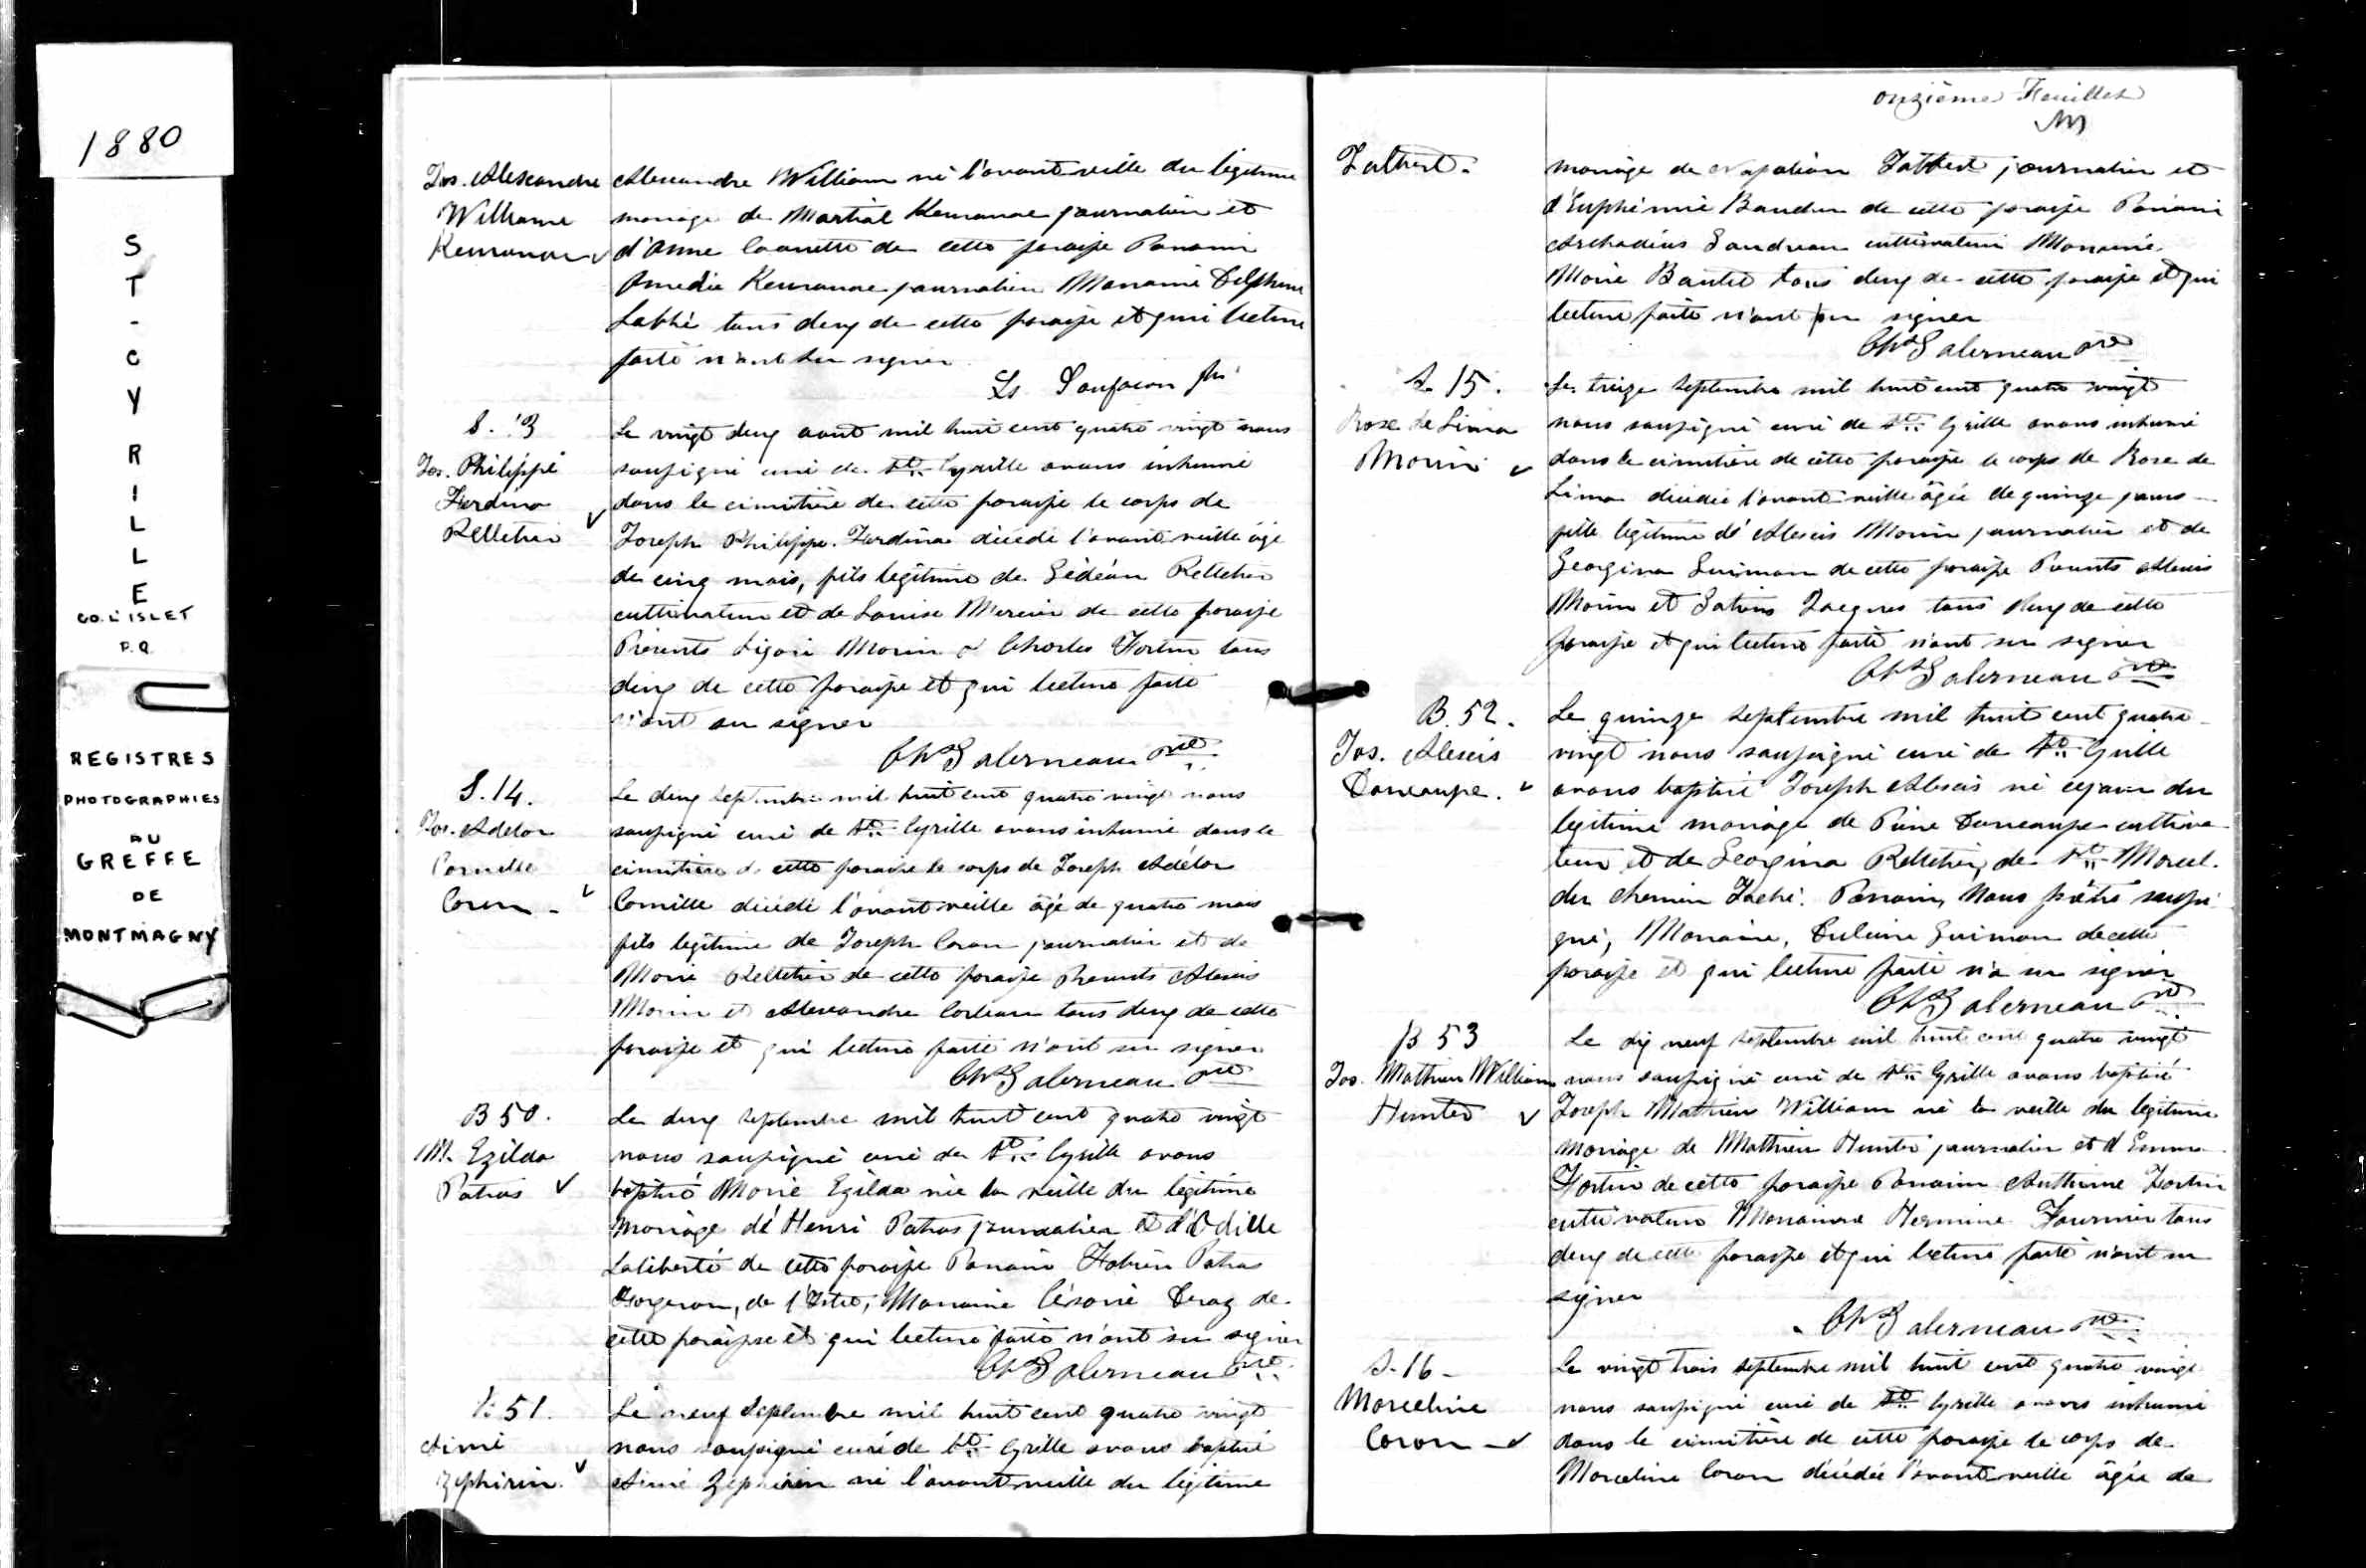 1880
ST-CYRILLE
CO. L'ISLET
P.Q.
REGISTRES
PHOTOGRAPHIES
AU
GREFFE
DE
MONTMAGNY
Jos. Alexandre
William
Alexandre William né l'avant veille du légitime
mariage de Martial journalier et
d'Anne de cette paroisse Parrain
Amédie journalier Marraine Delphine
Labbé tous deux de cette paroisse et qui lecture
faite n'ont su signer
Ls ptre
S. 13
Jos. Philippe
Ferdina
Pelletier
Le vingt deux aout mil huit cent quatre vingt nous
soussigné curé de St. Cyrille avons inhumé
dans le cimetière de cette paroisse le corps de
Joseph Philippe Ferdina décédé l'avant veille âgé
de cinq mois, fils légitime de Gédéon Pelletier
cultivateur et de Louise Mercier de cette paroisse
Présents Ligori Morin & Charles Fortin tous
deux de cette paroisse et qui lecture faite
n'ont su signer
Chs Galerneau ptre
S. 14.
Jos. Adelor
Camille
Caron -
Le deux septembre mil huit cent quatre vingt nous
soussigné curé de St. Cyrille avons inhumé dans le
cimetière de cette paroisse le corps de Joseph Adélor
Camille décédé l'avant veille âgé de quatre mois
fils légitime de Joseph Caron journalier et de
Marie Pelletier de cette paroisse Présents Alexis
Morin et Alexandre tous deux de cette
paroisse et qui lecture faite n'ont su signer
Chs Galerneau ptre
B 50.
M. Ezilda
Patras
Le deux septembre mil huit cent quatre vingt
nous soussigné curé de St. Cyrille avons
baptisé Marie Ezilda née la veille du légitime
mariage de Henri Patras journalier et d'Odille
Laliberté de cette paroisse Parrain Patras
Forgeron, de l'Islet, Marraine Césarie de
cette paroisse et qui lecture faite n'ont su signer
Chs Galerneau ptre
B 51.
Aimé
Zéphirin.
Le neuf Septembre mil huit cent quatre vingt
nous soussigné curé de St. Cyrille avons baptisé
Aimé Zéphirin né l'avant veille du légitime
onzième Feuillet
Jalbert.
mariage de Napoléon Jalbert journalier et
d'Euphémie de cette paroisse Parrain
Archadius Gaudreau cultivateur Marraine
Marie tous deux de cette paroisse et qui
lecture faite n'ont pu signer
Chs Galerneau ptre
S. 15.
Rose de Lima
Morin
Le treize Septembre mil huit cent quatre vingt
nous soussigné curé de St. Cyrille avons inhumé
dans le cimetière de cette paroisse le corps de Rose de
Lima décédée l'avant veille âgée de quinze jours
fille légitime d'Alexis Morin journalier et de
Georgina Guimon de cette paroisse Présents Alexis
Morin et Jacques tous deux de cette
paroisse et qui lecture faite n'ont su signer
Chs Galerneau ptre
B. 52.
Jos. Alexis
Le quinze septembre mil huit cent quatre-
vingt nous soussigné curé de St. Cyrille
avons baptisé Joseph Alexis né ce jour du
légitime mariage de cultiva-
teur et de Georgina Pelletier, de St. Marcel.
du chemin Taché. Parrain, Nous prêtre soussi-
gné, Marraine, Guimon de cette
paroisse et qui lecture faite n'a su signer
Chs Galerneau ptre
B 53
Jos. Mathieu William
Hunter
Le dix neuf septembre mil huit cent quatre vingt
nous soussigné curé de St. Cyrille avons baptisé
Joseph Mathieu William né la veille du légitime
mariage de Mathieu Hunter journalier et d'Emma
Fortin de cette paroisse Parrain Anthime Fortin
cultivateur Marraine Hermine Fournier tous
deux de cette paroisse et qui lecture faite n'ont su
signer
Chs Galerneau ptre
S. 16 -
Marceline
Caron -
Le vingt trois septembre mil huit cent quatre vingt
nous soussigné curé de St. Cyrille avons inhumé
dans le cimetière de cette paroisse le corps de
Marceline Caron décédée l'avant veille âgée de